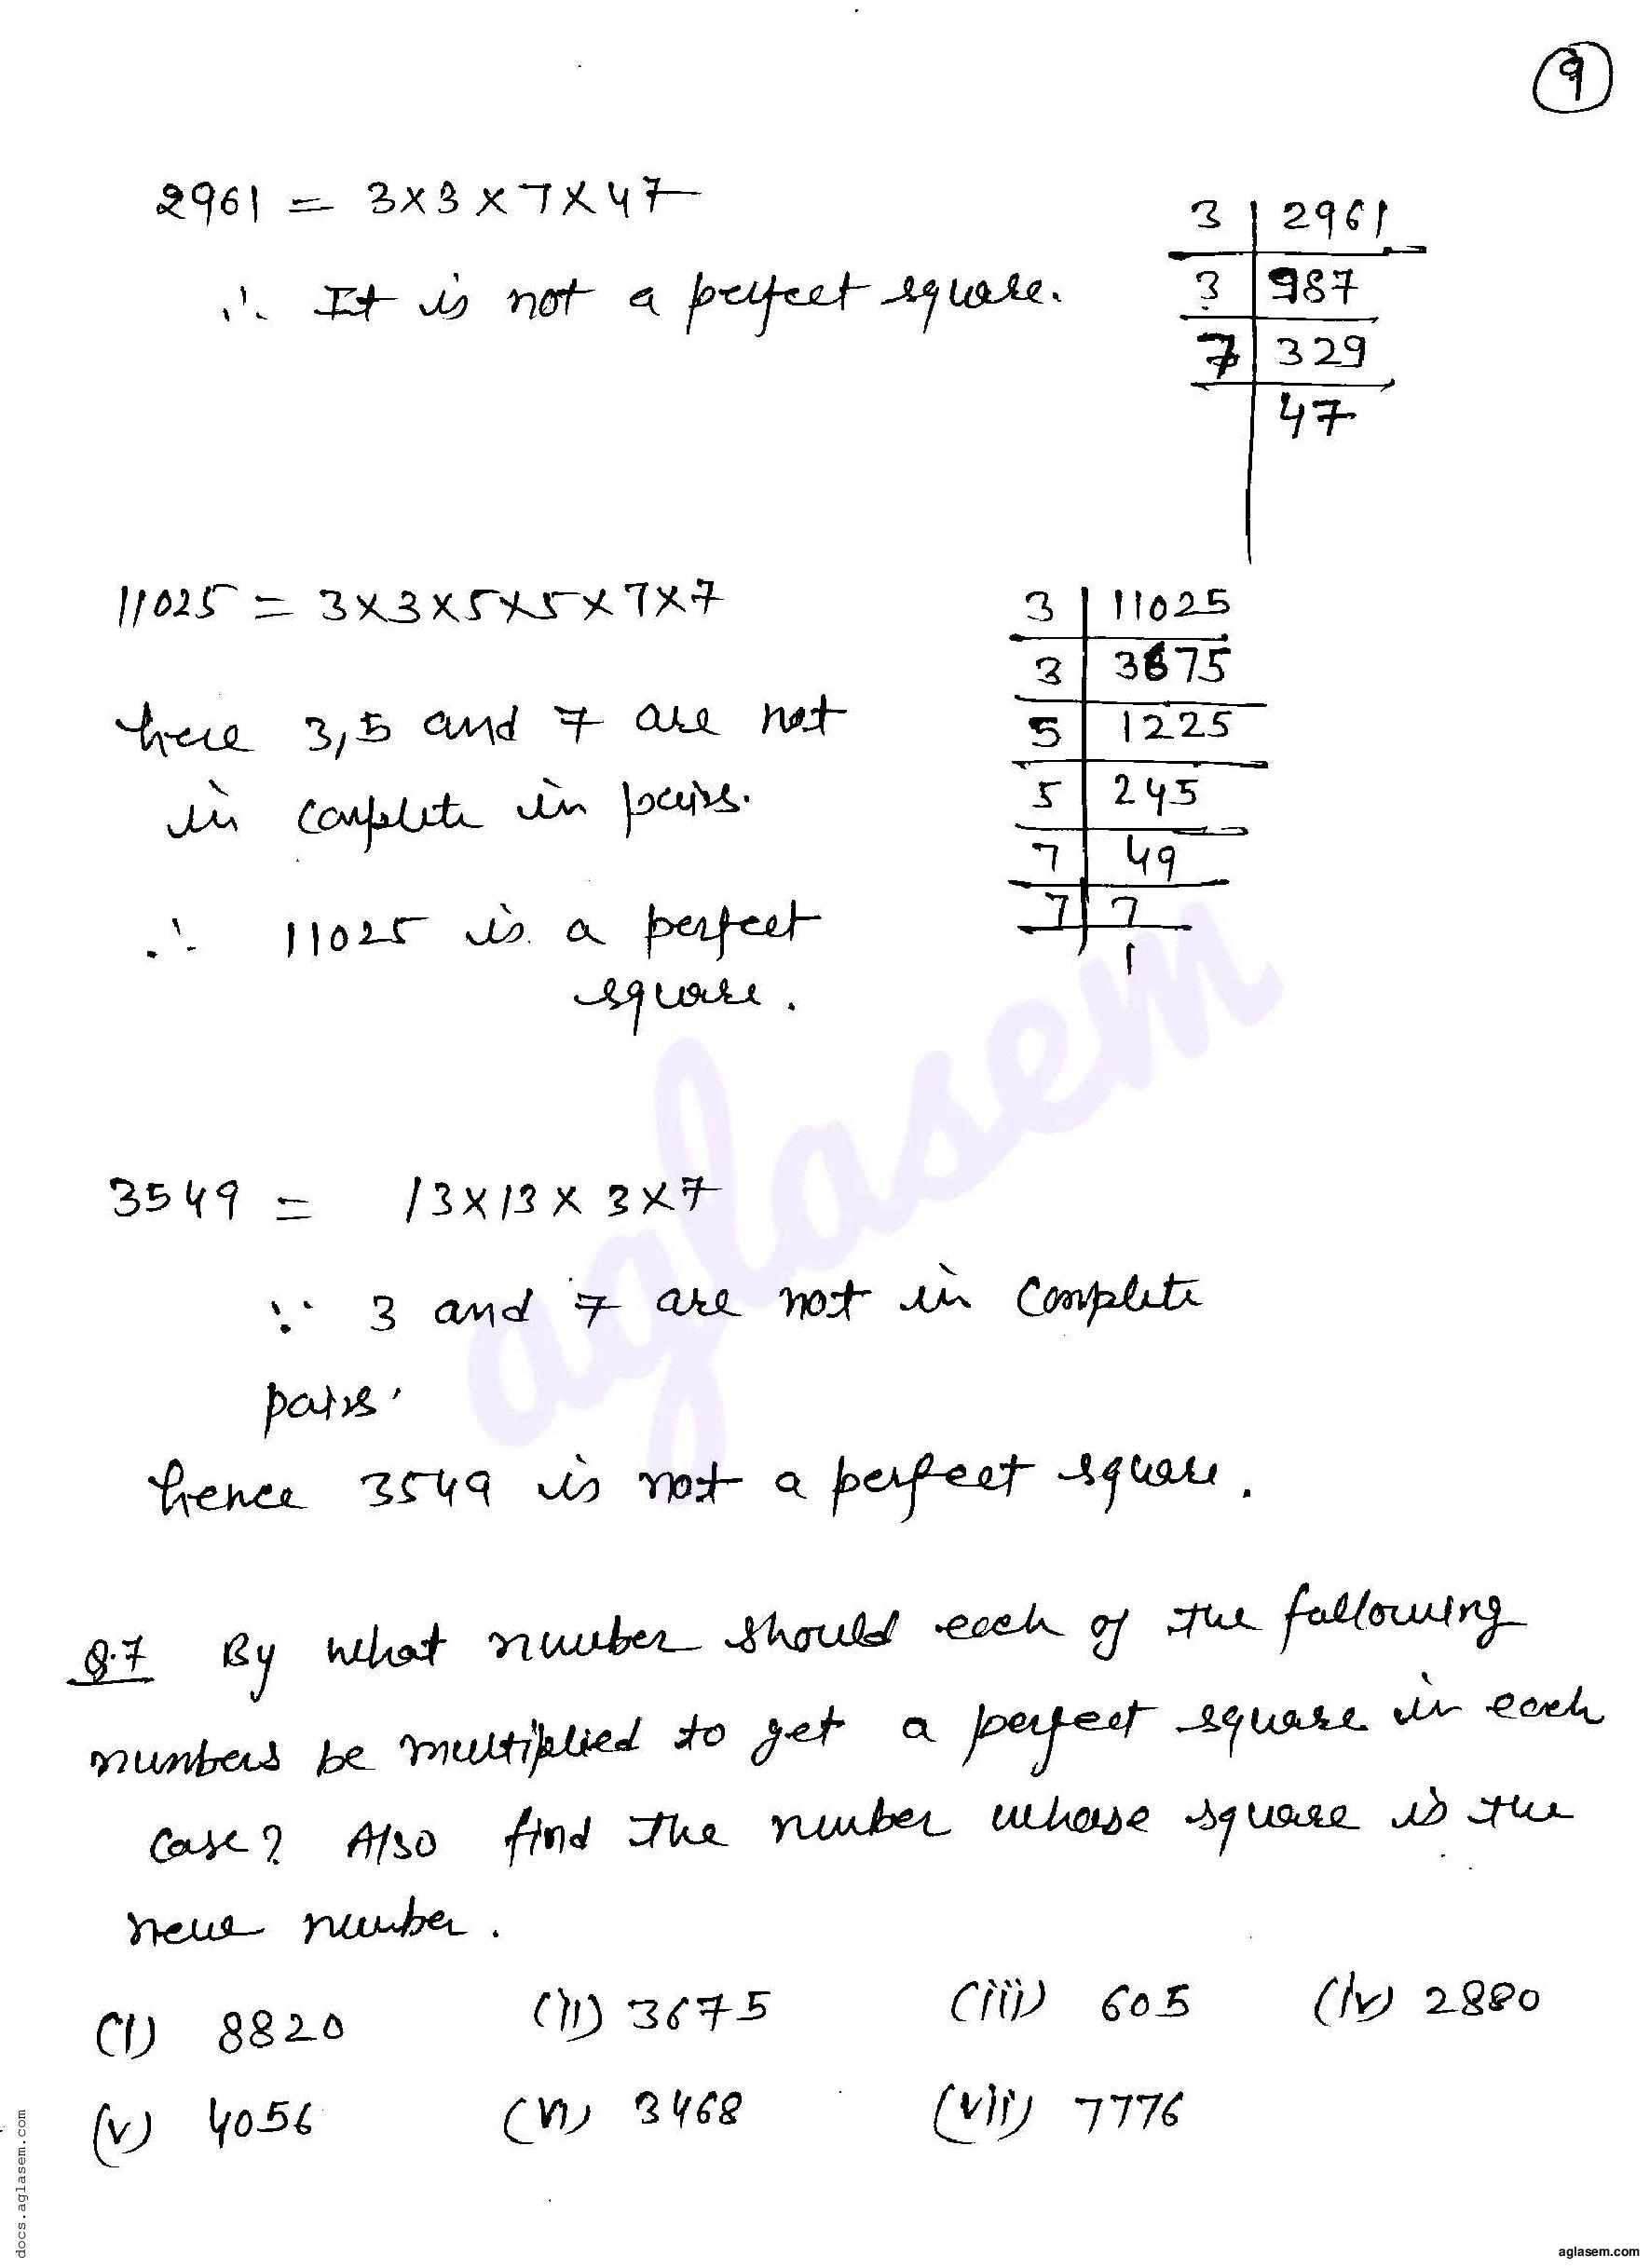 9
2961 = 3×3×7×47
∴ It is not a perfect square.
3 | 2961
3 | 987
7 | 329
47
11025 = 3×3×5×5×7×7
here 3,5 and 7 are not
in complete in pairs.
∴ 11025 is a perfect
square.
3 | 11025
3 | 3675
5 | 1225
5 | 245
7 | 49
7 | 7
1
3549 = 13×13×3×7
∵ 3 and 7 are not in complete
pairs.
hence 3549 is not a perfect square.
Q.7 By what number should each of the following
numbers be multiplied to get a perfect square in each
case? Also find the number whose square is the
new number.
(i) 8820 (ii) 3675 (iii) 605 (iv) 2880
(v) 4056 (vi) 3468 (vii) 7776
aglasem
docs.aglasem.com
aglasem.com